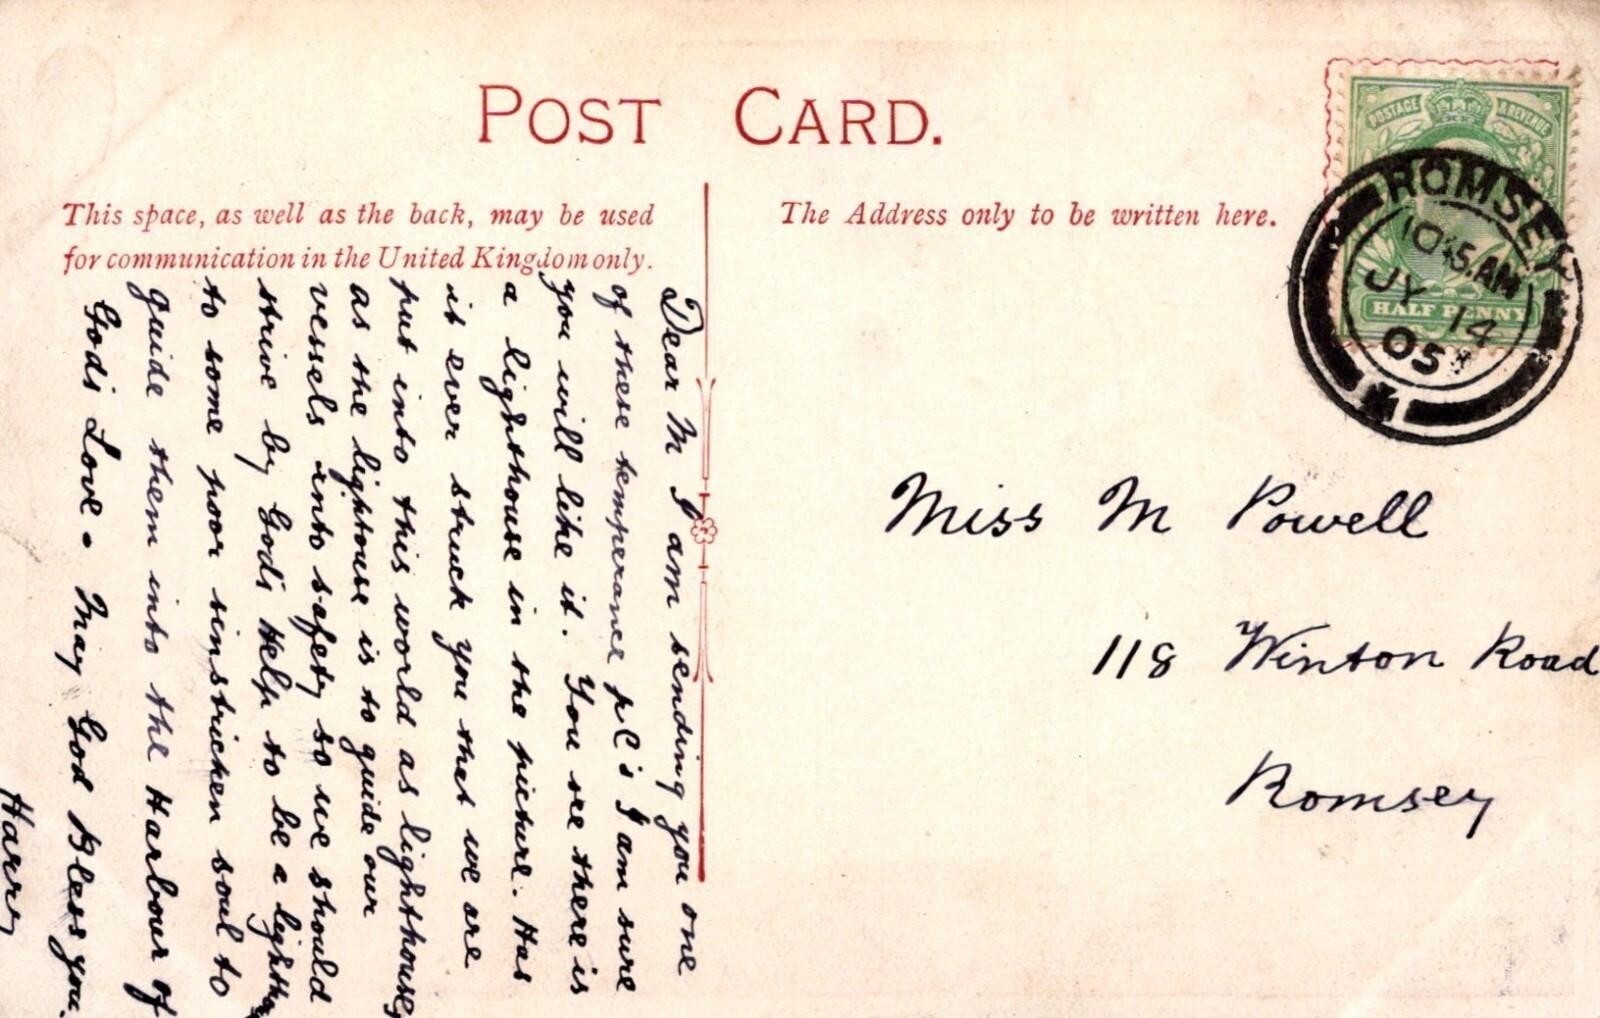 POST CARD.
This space, as well as the back, may be used
for communication in the United Kingdom only.
The Address only to be written here.
POSTAGE & REVENUE
HALF PENNY
ROMSEY
10.45.AM
JY 14
05
Dear M I am sending you one
of these temperance pC's I am sure
you will like it. You see there is
a lighthouse in the picture. Has
it ever struck you that we are
put into this world as lighthouses
as the lightouse is to guide our
vessels into safety so we should
strive by God's Help to be a
to some poor sinstricken soul to
guide them into the Harbour of
Gods Love. May God Bless you.
Harry
Miss M Powell
118 Winton Road
Romsey